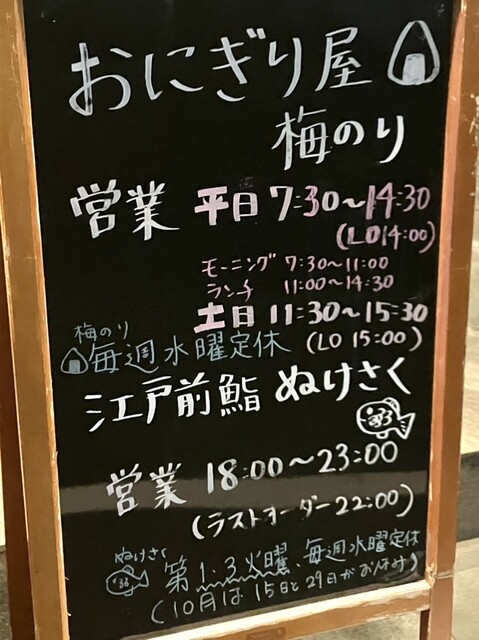 おにぎり屋
梅のり
営業 平日 7:30〜14:30
(LO 14:00)
モーニング 7:30〜11:00
ランチ 11:00〜14:30
土日 11:30〜15:30
(LO 15:00)
梅のり
毎週水曜定休
江戸前鮨 ぬけさく
営業 18:00〜23:00
(ラストオーダー 22:00)
ぬけさく
第1.3火曜、毎週水曜定休
(10月は15日と29日がお休み)